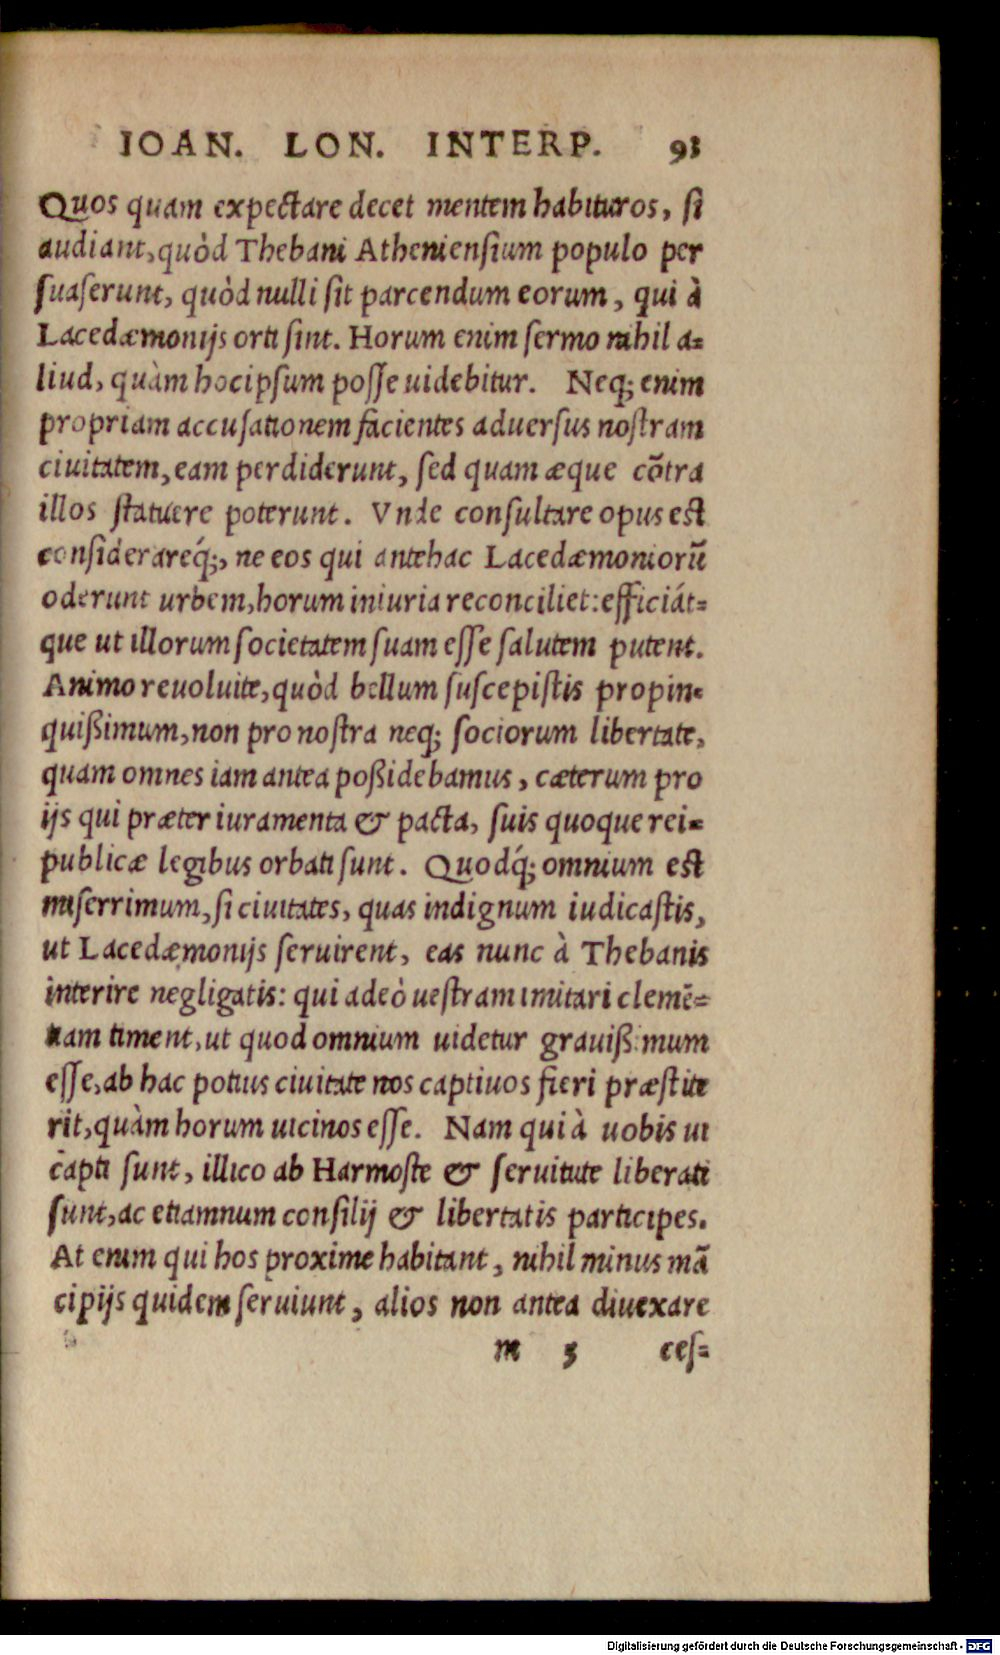 IOAN. LON. INTERP. 93
Quos quam expectare decet mentem habituros, si
audiant, quòd Thebani Atheniensium populo per
suaserunt, quòd nulli sit parcendum eorum, qui à
Lacedæmonijs orti sint. Horum enim sermo nihil a=
liud, quàm hoc ipsum posse uidebitur. Neq; enim
propriam accusationem facientes aduersus nostram
ciuitatem, eam perdiderunt, sed quam æque cõtra
illos statuere poterunt. Vnde consultare opus est
considerareq́;, ne eos qui antehac Lacedæmoniorũ
oderunt urbem, horum iniuria reconciliet: efficiát=
que ut illorum societatem suam esse salutem putent.
Animo reuoluite, quòd bellum suscepistis propin=
quißimum, non pro nostra neq; sociorum libertate,
quam omnes iam antea poßidebamus, cæterum pro
ijs qui præter iuramenta & pacta, suis quoque rei=
publicæ legibus orbati sunt. Quodq́; omnium est
miserrimum, si ciuitates, quas indignum iudicastis,
ut Lacedæmonijs seruirent, eas nunc à Thebanis
interire negligatis: qui adeò uestram imitari clemẽ=
tiam timent, ut quod omnium uidetur grauißimum
esse, ab hac potius ciuitate nos captiuos fieri præstite
rit, quàm horum uicinos esse. Nam qui à uobis ui
capti sunt, illico ab Harmoste & seruitute liberati
sunt, ac etiamnum consilij & libertatis participes.
At enim qui hos proxime habitant, nihil minus mã
cipijs quidem seruiunt, alios non antea diuexare
m 3 ces=
Digitalisierung gefördert durch die Deutsche Forschungsgemeinschaft - DFG